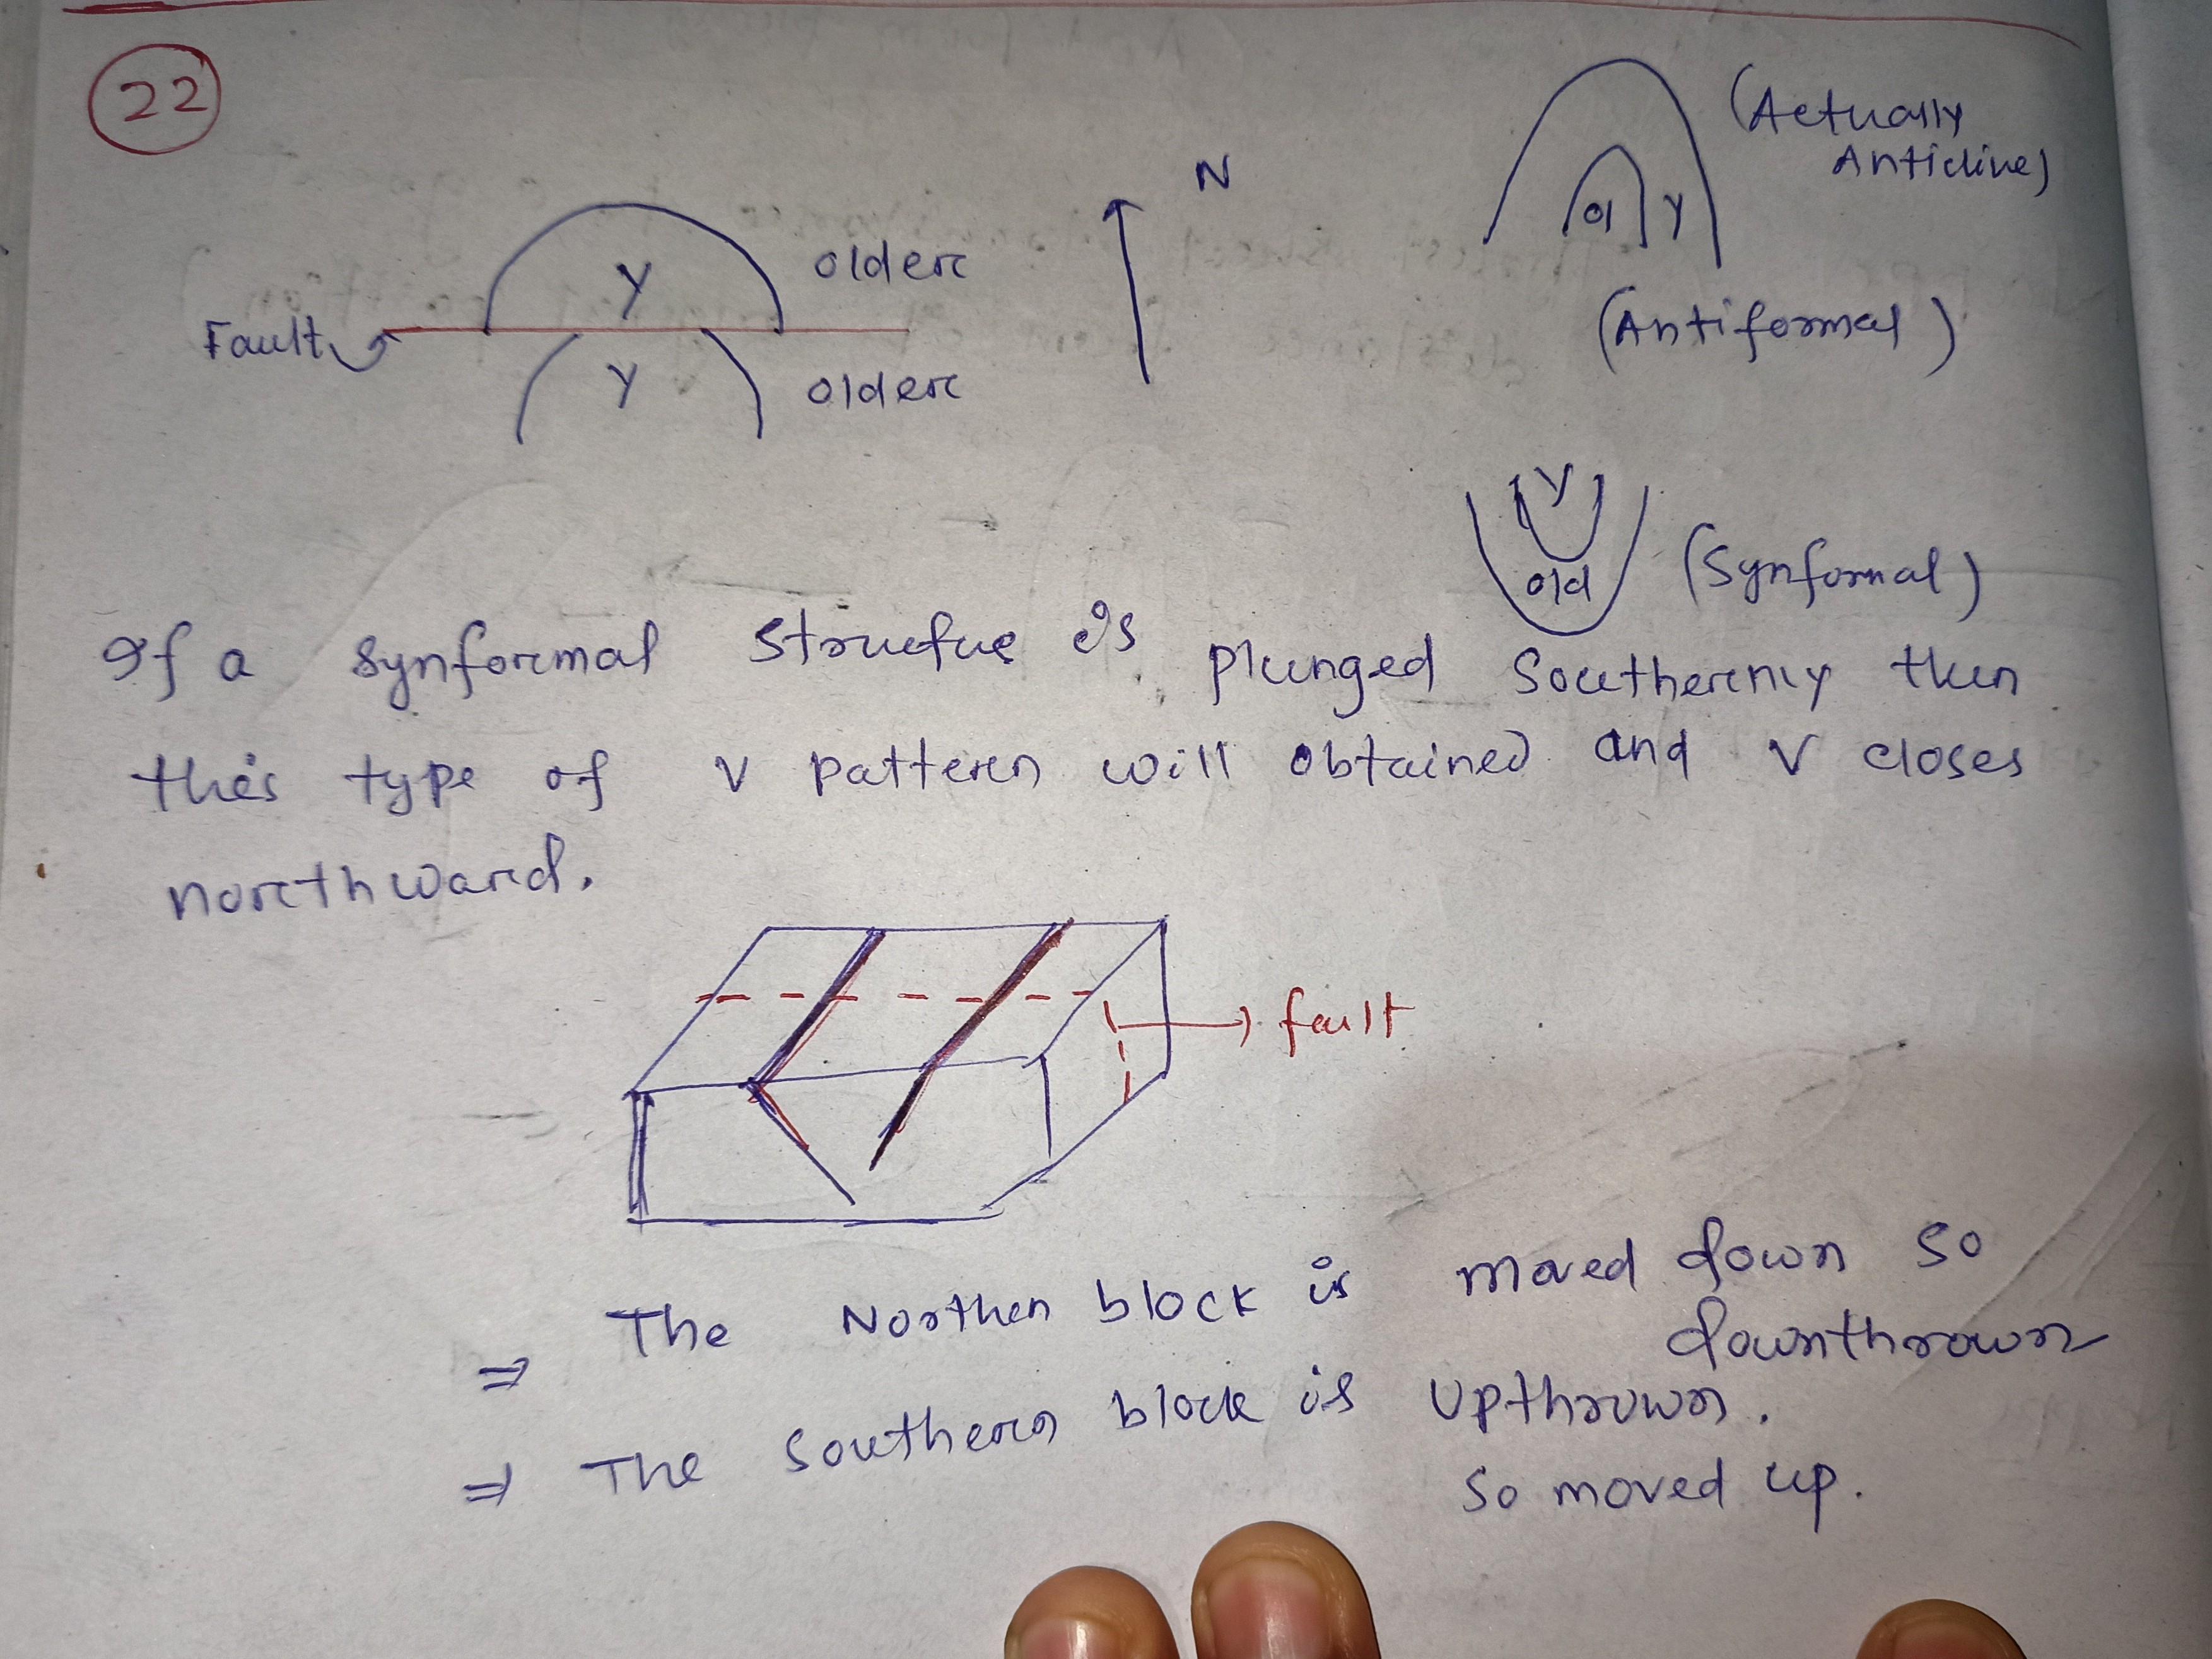 22
(Actually
Anticline)
N
Y
older
ol
Y
Fault
Y
older
(Antiformal)
Y
old
(Synformal)
If a synformal structure is plunged Southernly then
this type of V pattern will obtained and V closes
northward.
fault
⇒ The Northen block is moved down so
downthrown
⇒ The Southern block is upthrown.
So moved up.